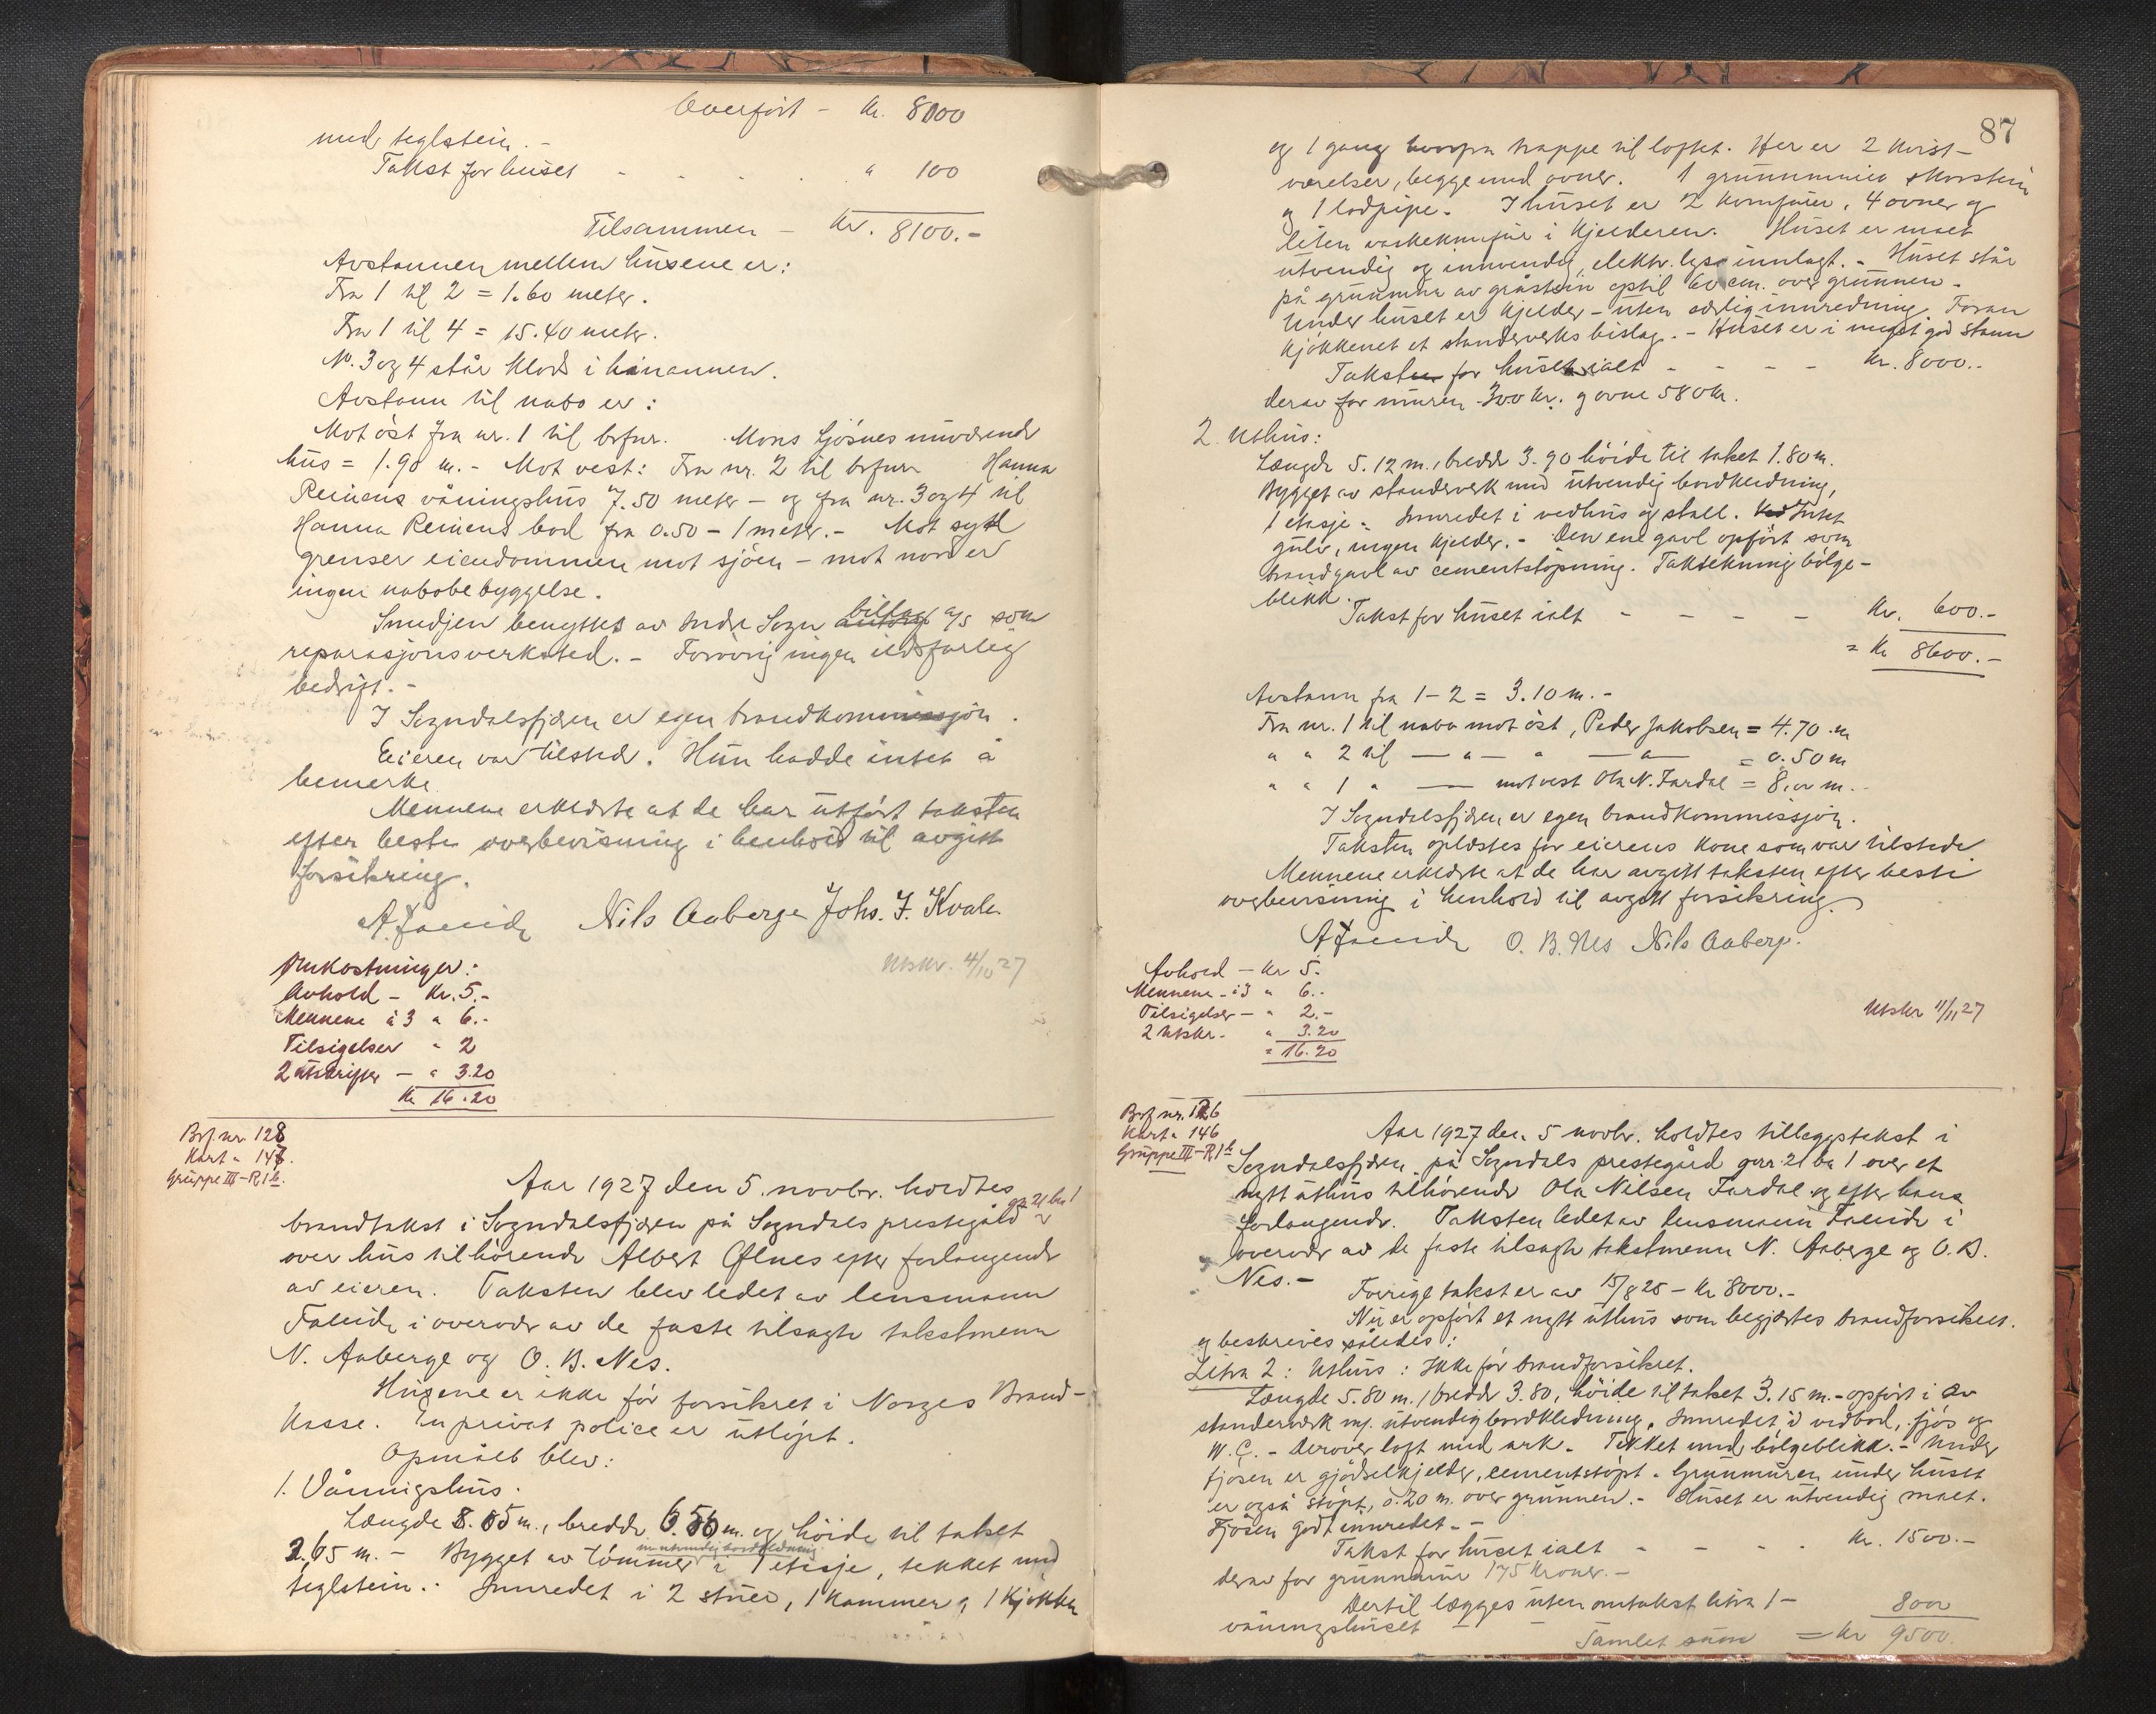 Overført - Kr. 8000
med teglstein. -
Takst for huset - - - - " 100
Tilsammen - Kr. 8100.-
Avstannen mellem husene er:
Fra 1 til 2 = 1.60 meter.
Fra 1 til 4 = 15.40 meter.
No. 3 og 4 står klods i hinannen.
Avstann til nabo er:
Mot øst fra nr. 1 til brfnr. Mons Gjøsnes nuværende
hus = 1.90 m. - Mot vest: Fra nr. 2 til brfnr Hanna
Reinens våningshus 7.50 meter - og fra nr. 3 og 4 til
Hanna Reinens bod fra 0.50 - 1 meter. - Mot syd
grenser eiendommen mot sjøen - mot nord er
ingen nabobebyggelse.
Smedjen benyttes av Indre Sogn billag a/s som
reparasjonsverksted. - Forøvrig ingen ildsfarlig
bedrift. -
I Sogndalsfjøren er egen brandkommissjon.
Eieren var tilstede. Hun hadde intet å
bemerke.
Mennene erklærte at de har utført taksten
efter beste overbevisning i henhold til avgitt
forsikring.
A. Faleide Nils Aaberge Johs. J. Kvale
Utskr. 4/10 27
Omkostninger:
Avhold - Kr. 5.-
Mennene à 3 " 6.-
Tilsigelser " 2
2 utskrifter - " 3.20
Kr 16.20
Brf. nr. 128
Kart " 147.
Gruppe III - R 1 b.
Aar 1927 den 5. novbr. holdtes
brandtakst i Sogndalsfjøren på Sogndals prestegård gr. 21 br 1
over hus tilhørende Albert Ølnes efter forlangende
av eieren. Taksten blev ledet av lensmann
Faleide i overvær av de faste tilsagte takstmenn
N. Aaberge og O. B. Nes.
Husene er ikke før forsikret i Norges Brand-
kasse. En privat police er utløpt.
Opmålt blev:
1. Våningshus.
Længde 8.65 m., bredde 6.56 m. og høide til taket
2.65 m. - Bygget av tømmer m utvendig bordkledning i 1 etasje, tekket med
teglstein. - Innredet i 2 stuer, 1 kammer, 1 kjøkken
87
og 1 gang hvorfra trappe til loftet. Her er 2 kvist-
værelser, begge med ovner. 1 grunnmuret skorstein
og 1 lodpipe. I huset er 2 komfurer, 4 ovner og
liten vaskekomfur i kjelderen. Huset er malt
utvendig og innvendig, elektr. lys innlagt. - Huset står
på grunnmur av gråstein optil 60 cm. over grunnen.
Under huset er kjelder - uten særlig innredning. Foran
kjøkkenet et standerverks bislag. - Huset er i meget god stann
Taksten for huset ialt - - - - Kr. 8000.-
derav for muren 300 kr. og ovne 580 kr.
2. Uthus:
Længde 5.12 m., bredde 3.90 høide til taket 1.80 m.
Bygget av standerverk med utvendig bordkledning,
1 etasje. Innredet i vedhus og stall. Intet
gulv, ingen kjelder. - Den ene gavl opført som
brandgavl av cementstøpning. Taktekning bølge-
blikk.
Takst for huset ialt - - - - Kr. 600.-
= Kr 8600.-
Avstann fra 1 - 2 = 3.10 m. -
Fra nr. 1 til nabo mot øst, Peder Jakobsen = 4.70 m
" " 2 til — " — " — " — = 0.50 m
" " 1 " — mot vest Ola N. Fardal = 8,00 m.
I Sogndalsfjøren er egen brandkommissjon.
Taksten oplæstes for eierens kone som var tilstede
Mennene erklærte at de har avgitt taksten efter beste
overbevisning i henhold til avgitt forsikring.
A Faleide O. B. Nes Nils Aaberge.
Avhold - Kr 5.-
Mennene - à 3 " 6.-
Tilsigelser - " 2.-
2 Utskr. " 3.20
" 16.20
Utskr 11/11 27
Brf nr. 126
Kart " 146
Gruppe III - R 1 b
Aar 1927 den 5 novbr. holdtes tillegstakst i
Sogndalsfjøren på Sogndals prestegård gnr. 21 br 1 over et
nytt uthus tilhørende Ola Nilsen Fardal og efter hans
forlangende. Taksten ledet av lensmann Faleide i
overvær av de faste tilsagte takstmenn N. Aaberge og O. B.
Nes. - Forrige takst er av 15/8 25 - Kr 8000.-
Nu er opført et nytt uthus som begjærtes brandforsikret.
og beskrives således:
Litra 2: Uthus: Ikke før brandforsikret.
Længde 5.80 m., bredde 3.80, høide til taket 3.15 m. - opført i av
standerverk m. utvendig bordkledning. Innredet i vedbod, fjøs og
W.C. - Derover loft med ark. Tekket med bølgeblikk. - Under
fjøsen er gjødselkjelder, cementstøpt. Grunnmuren under huset
er også støpt, 0.20 m. over grunnen. - Huset er utvendig malt.
Fjøsen godt innredet. -
Takst for huset ialt - - - - Kr. 1500.-
derav for grunnmur 175 kroner. -
Dertil lægges uten omtakst litra 1 -
våningshuset 8000
Samlet sum = Kr 9500.